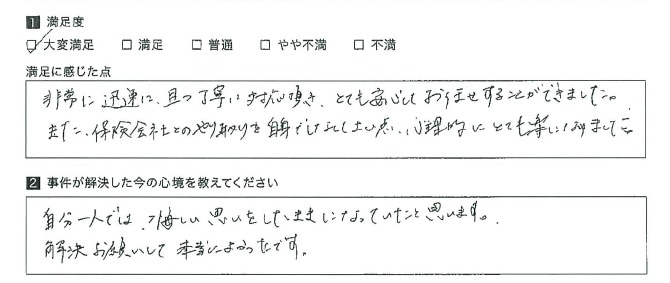 1 満足度
☑大変満足 □ 満足 □ 普通 □ やや不満 □ 不満
満足に感じた点
非常に迅速に、且つ丁寧に対応頂き、とても安心してお任せすることができました。
また、保険会社とのやり取りを自身でしなくてよい点、心理的にとても楽になりました。
2 事件が解決した今の心境を教えてください
自分一人では、悔しい思いをしたままになっていたと思います。
解決お願いして本当によかったです。